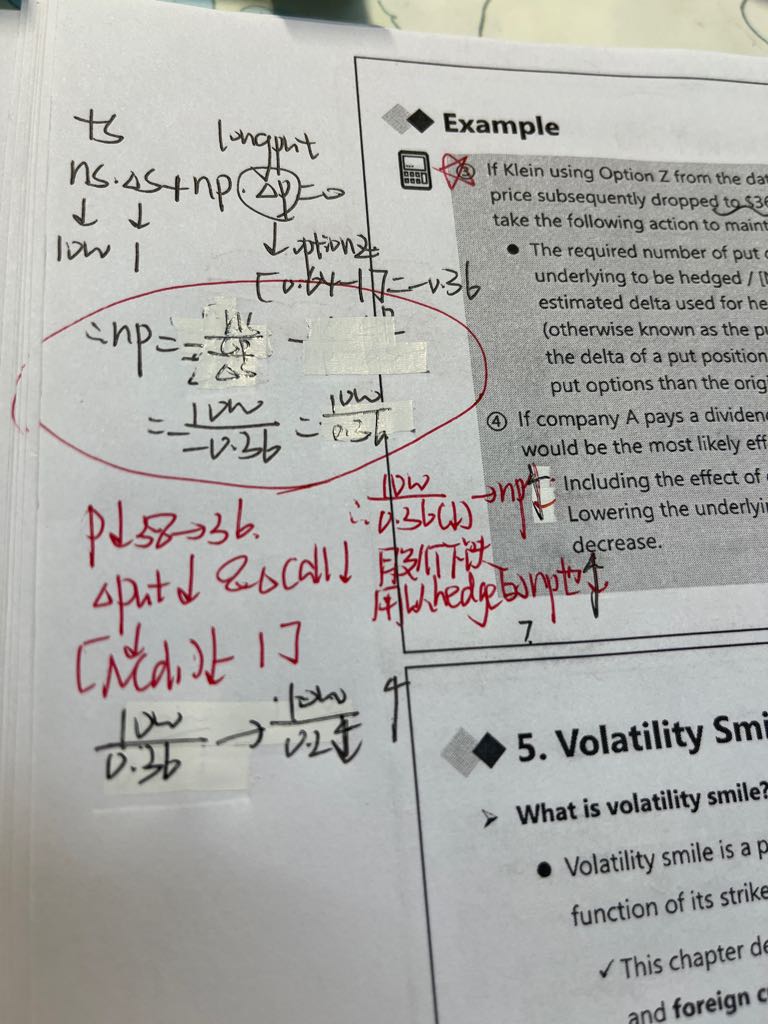 ts
longput
ns.Δs+np.Δp=0
↓ ↓
10w 1
↓ optionz=
[0.64-1]=-0.36
∴np=-
=-10w/-0.36=10w/0.36
P↓38→36.
Δput↓&Δcall↓
[N(d1)↓-1]
10w/0.36→10w/0.2↓ ↑
∴10w/0.36(↓)→np
股价下跌
所以hedge的npto
?
Example
③ If Klein using Option Z from the dat
price subsequently dropped to $36
take the following action to maint
● The required number of put o
underlying to be hedged / [N
estimated delta used for he
(otherwise known as the pu
the delta of a put position
put options than the origi
④ If company A pays a dividend
would be the most likely eff
Including the effect of
Lowering the underlyin
decrease.
5. Volatility Smi
➢ What is volatility smile?
● Volatility smile is a p
function of its strike
✓ This chapter de
and foreign cu